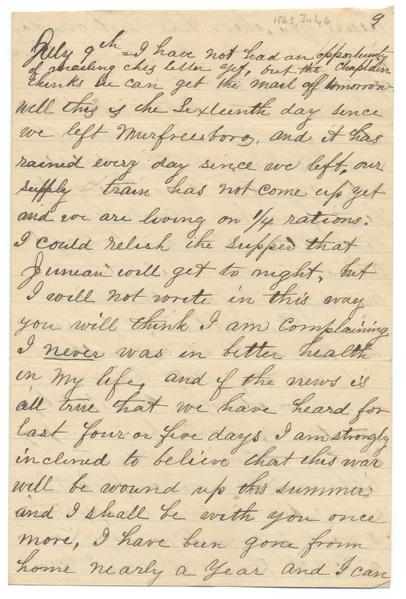 1863 July 6
9
July 9th I have not had an opportunity
of mailing this letter yet, but the Chaplain
thinks we can get the mail off tomorrow
Well this is the Sixteenth day since
we left Murfreesboro, and it has
rained every day since we left, our
supply train has not come up yet
and we are living on 1/4 rations.
I could relish the supper that
Juneau will get to night, but
I will not write in this way
you will think I am complaining
I never was in better health
in my life, and if the news is
all true that we have heard for
last four or five days. I am strongly
inclined to believe that this war
will be wound up this summer
and I shall be with you once
more, I have been gone from
home nearly a Year and I can